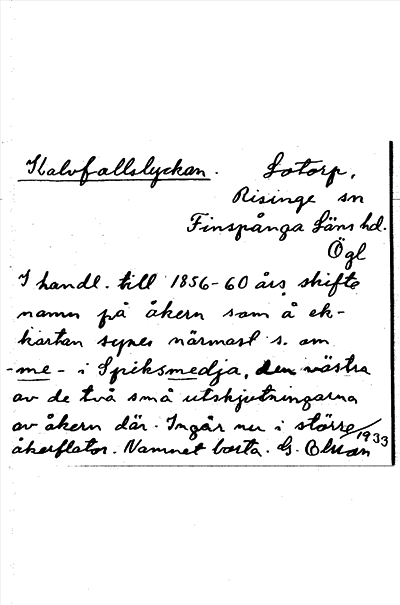 Kalvfallslyckan. Sotorp,
Risinge sn
Finspånga Läns hd.
Ögl
I handl. till 1856-60 års skifte
namn på åkern som å ek-
kartan synes närmast s. om
-me- i Spiksmedja, den västra
av de två små utskjutningarna
av åkern där. Ingår nu i större
åkerflator. Namnet borta. G. Olsson 1933